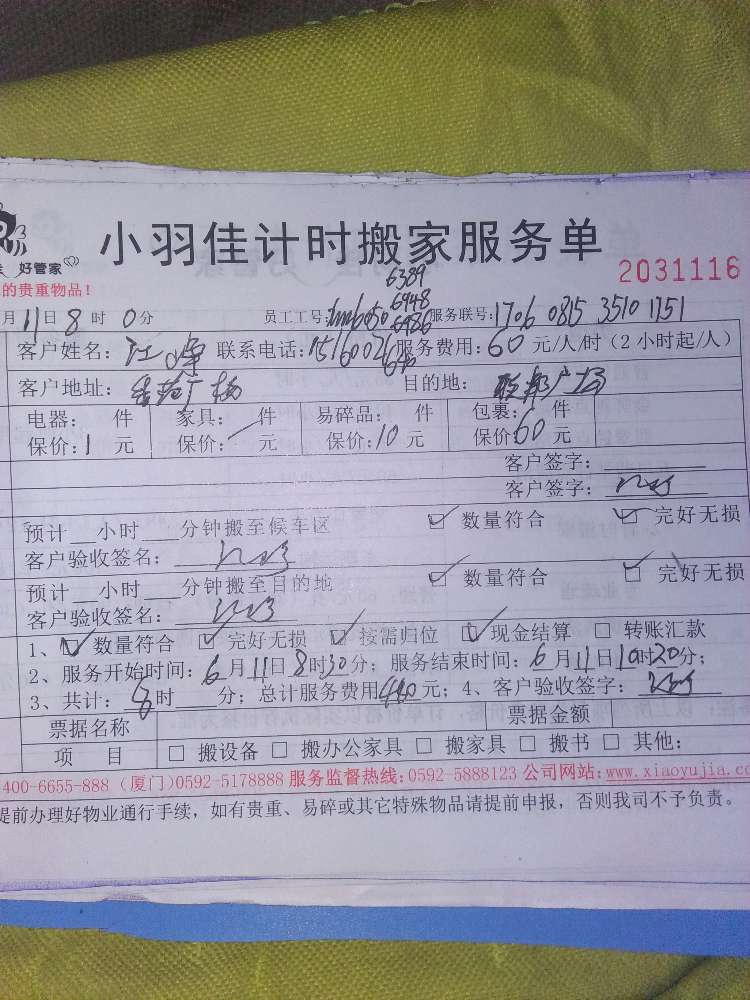 小羽佳计时搬家服务单
好管家
2031116
的贵重物品！
6389
6948
月11日8时0分 员工工号: 6486 服务联号:1706 0815 3510 1751
客户姓名: 江峰 联系电话:15160026 服务费用:60元/人/时（2小时起/人）
客户地址: 广场 目的地: 联邦广场
电器: 件 家具: 件 易碎品: 件 包裹: 件
保价:1元 保价: 元 保价:10元 保价:60元
客户签字:
客户签字:
预计 小时 分钟搬至候车区 ☑ 数量符合 ☑ 完好无损
客户验收签名:
预计 小时 分钟搬至目的地 ☑ 数量符合 ☑ 完好无损
客户验收签名:
1、☑ 数量符合 ☑ 完好无损 ☑ 按需归位 ☑ 现金结算 □ 转账汇款
2、服务开始时间:6月11日8时30分；服务结束时间:6月11日10时20分；
3、共计:8时 分；总计服务费用480元；4、客户验收签字:
票据名称 票据金额
项 目 □ 搬设备 □ 搬办公家具 □ 搬家具 □ 搬书 □ 其他:
400-6655-888（厦门）0592-5178888 服务监督热线:0592-5888123 公司网站:www.xiaoyujia.co
提前办理好物业通行手续，如有贵重、易碎或其它特殊物品请提前申报，否则我司不予负责。